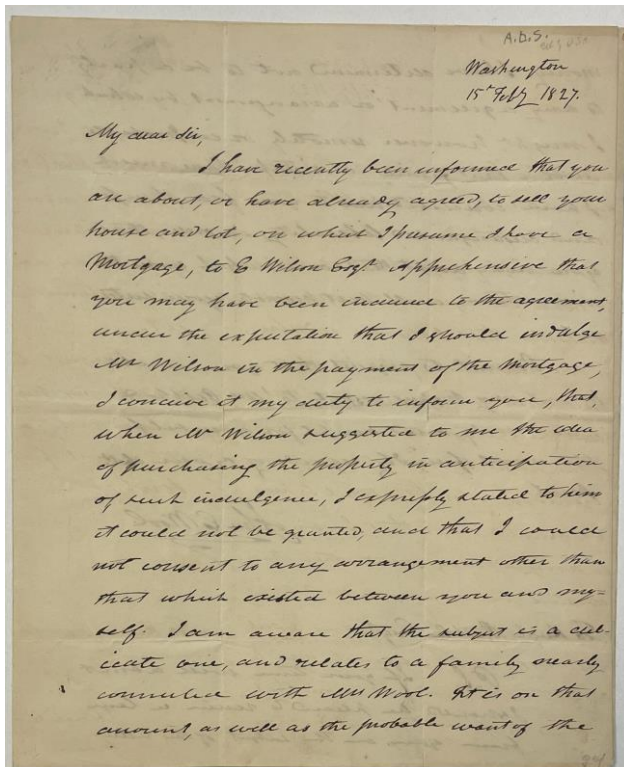 A.D.S.
Washington
15th Feby 1827.
My dear Sir,
I have recently been informed that you
are about, or have already agreed, to sell your
house and lot, on what I presume I have a
Mortgage, to E Wilson Esqr. Apprehensive that
you may have been induced to the agreement,
under the expectation that I should indulge
Mr Wilson in the payment of the Mortgage,
I conceive it my duty to inform you, that,
when Mr Wilson suggested to me the idea
of purchasing the property in anticipation
of such indulgence, I expressly stated to him
it could not be granted, and that I could
not consent to any arrangement other than
that which existed between you and my-
self. I am aware that the subject is a del-
icate one, and relates to a family nearly
connected with Mrs Wool. It is on that
account, as well as the probable want of the